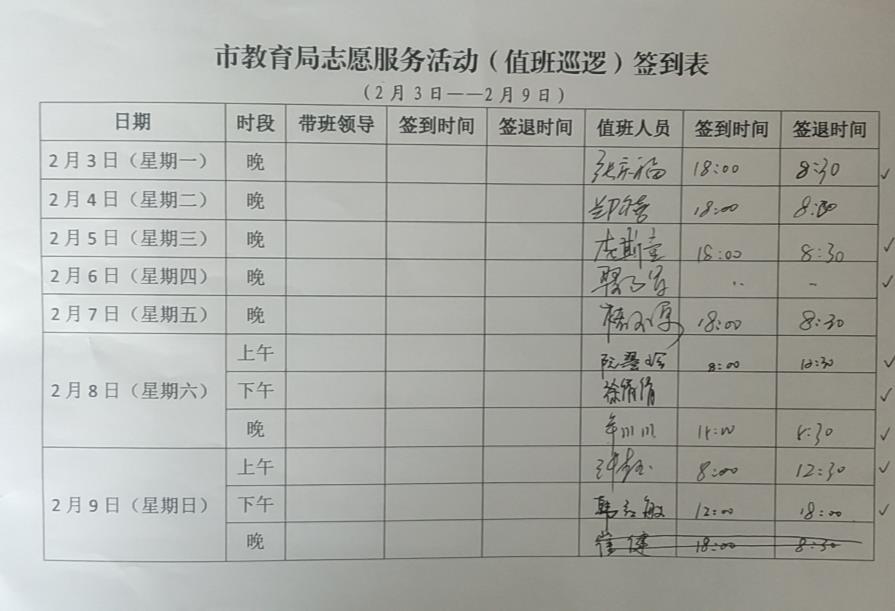 市教育局志愿服务活动（值班巡逻）签到表
（2月3日——2月9日）
日期 时段 带班领导 签到时间 签退时间 值班人员 签到时间 签退时间
2月3日（星期一） 晚 18:00 8:30 ✓
2月4日（星期二） 晚 18:00
2月5日（星期三） 晚 18:00 8:30 ✓
2月6日（星期四） 晚 ✓
2月7日（星期五） 晚 18:00 8:30
上午 8:00 12:30 ✓
2月8日（星期六） 下午 徐倩倩 ✓
晚 8:30 ✓
上午 8:00 12:30 ✓
2月9日（星期日） 下午 韩红敏 12:00 18:00 ✓
晚 崔健 18:00 8:30